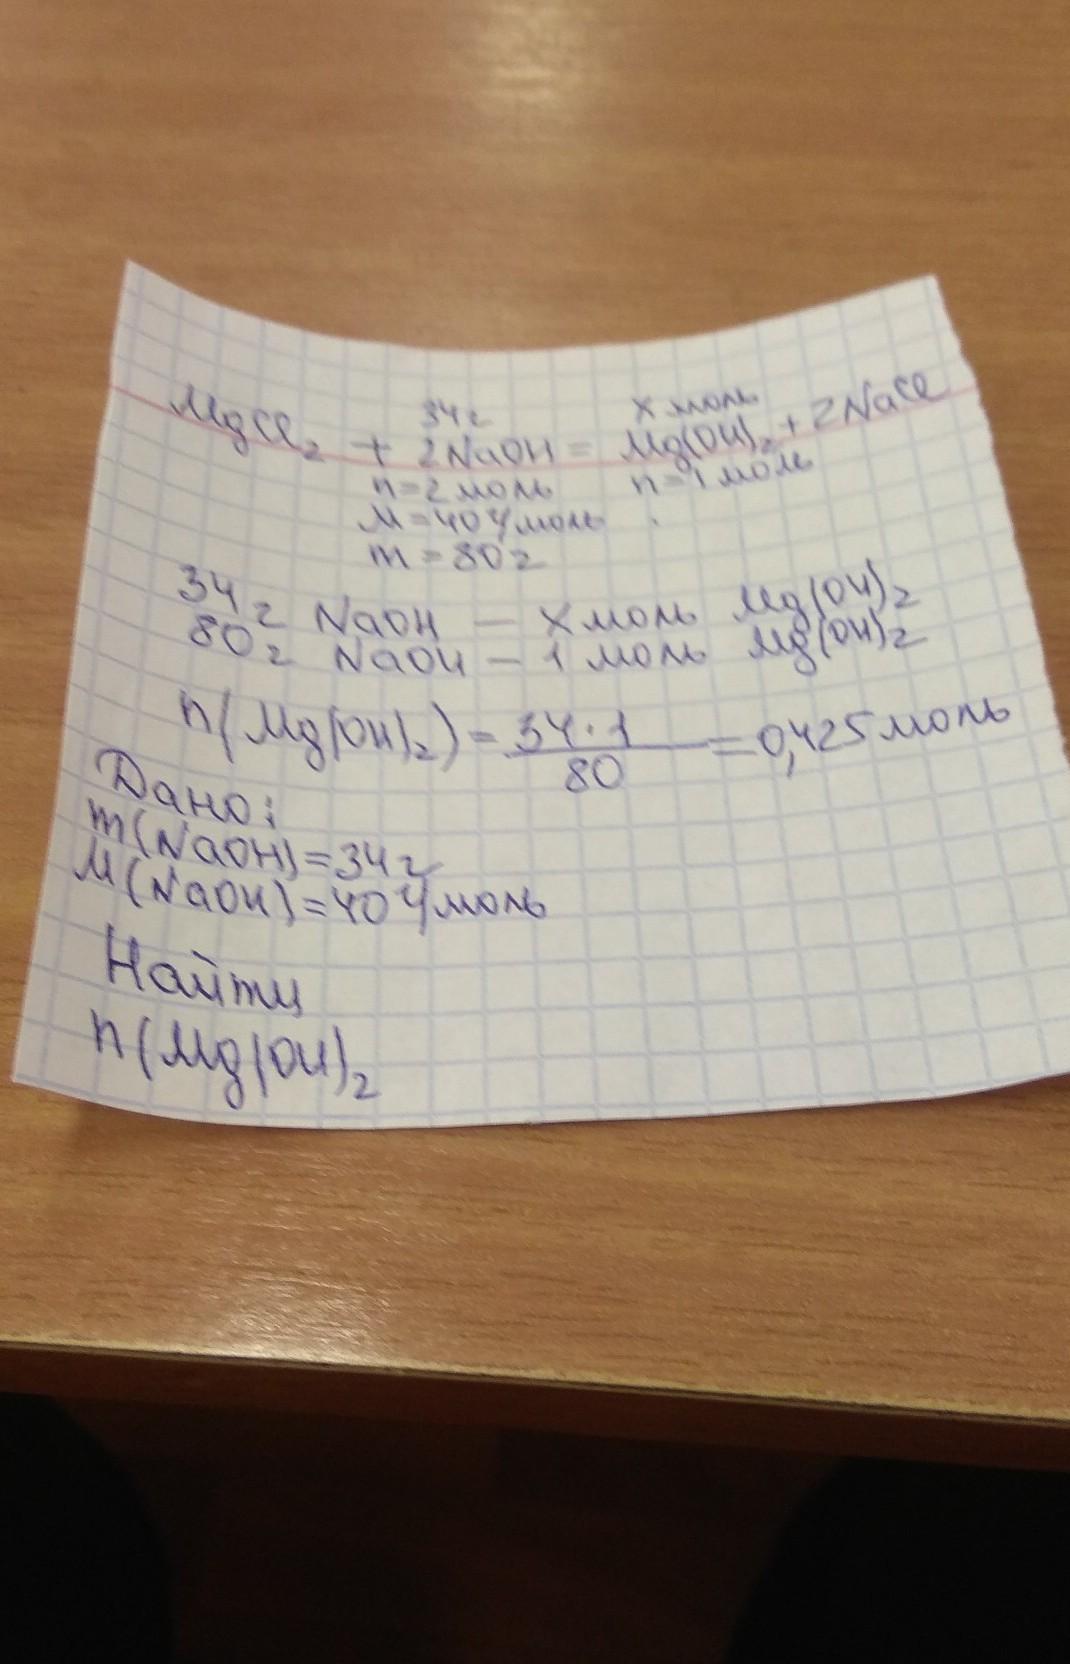 34г x моль
MgCl₂ + 2NaOH = Mg(OH)₂ + 2NaCl
n=2моль n=1моль
M=40г/моль
m=80г
34г NaOH — x моль Mg(OH)₂
80г NaOH — 1 моль Mg(OH)₂
n(Mg(OH)₂) = 34·1/80 = 0,425моль
Дано:
m(NaOH)=34г
M(NaOH)=40г/моль
Найти
n(Mg(OH)₂